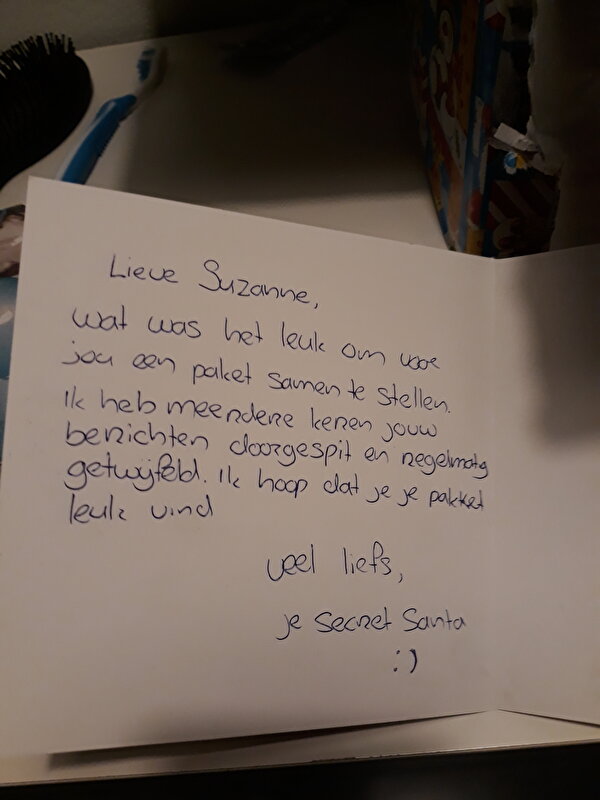 Lieve Suzanne,
wat was het leuk om voor
jou een paket samen te stellen.
Ik heb meerdere keren jouw
berichten doorgespit en regelmatig
getwijfeld. Ik hoop dat je je pakket
leuk vind
veel liefs,
je secret Santa
:)